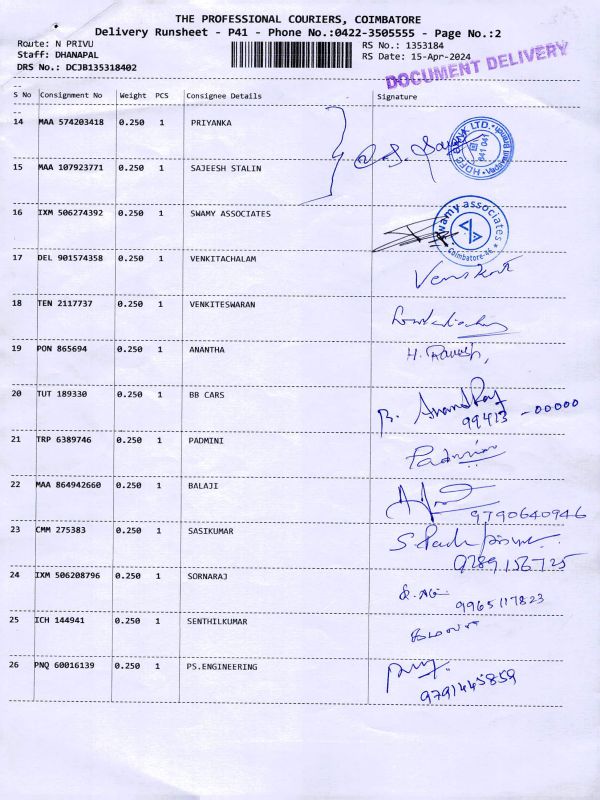 THE PROFESSIONAL COURIERS, COIMBATORE
Delivery Runsheet - P41 - Phone No.:0422-3505555 - Page No.:2
Route: N PRIVU RS No.: 1353184
Staff: DHANAPAL RS Date: 15-Apr-2024
DRS No.: DCJB135318402
DOCUMENT DELIVERY
S No Consignment No Weight PCS Consignee Details Signature
14 MAA 574203418 0.250 1 PRIYANKA
HDFC BANK LTD.
641 041
15 MAA 107923771 0.250 1 SAJEESH STALIN
16 IXM 506274392 0.250 1 SWAMY ASSOCIATES
Swamy associates
Coimbatore-46
17 DEL 901574358 0.250 1 VENKITACHALAM
18 TEN 2117737 0.250 1 VENKITESWARAN
19 PON 865694 0.250 1 ANANTHA
20 TUT 189330 0.250 1 BB CARS
99413 - 00000
21 TRP 6389746 0.250 1 PADMINI Padmini
22 MAA 864942660 0.250 1 BALAJI
9790640946
23 CMM 275383 0.250 1 SASIKUMAR
9289156725
24 IXM 506208796 0.250 1 SORNARAJ
9965117823
25 ICH 144941 0.250 1 SENTHILKUMAR
26 PNQ 60016139 0.250 1 PS.ENGINEERING
9791445859